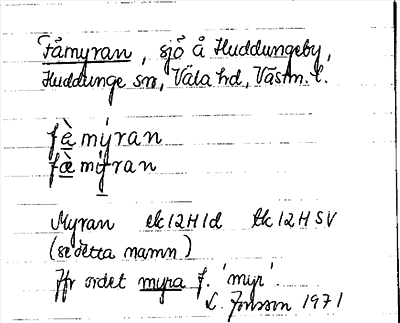 Fåmyran, sjö å Huddungeby,
Huddunge sn, Våla hd, Västm. l.
fè mýran
fæ̀ mýran
Myran ek 12H1d tk 12H SV
(se detta namn)
Jfr ordet myra f. 'myr'.
L. Jonsson 1971